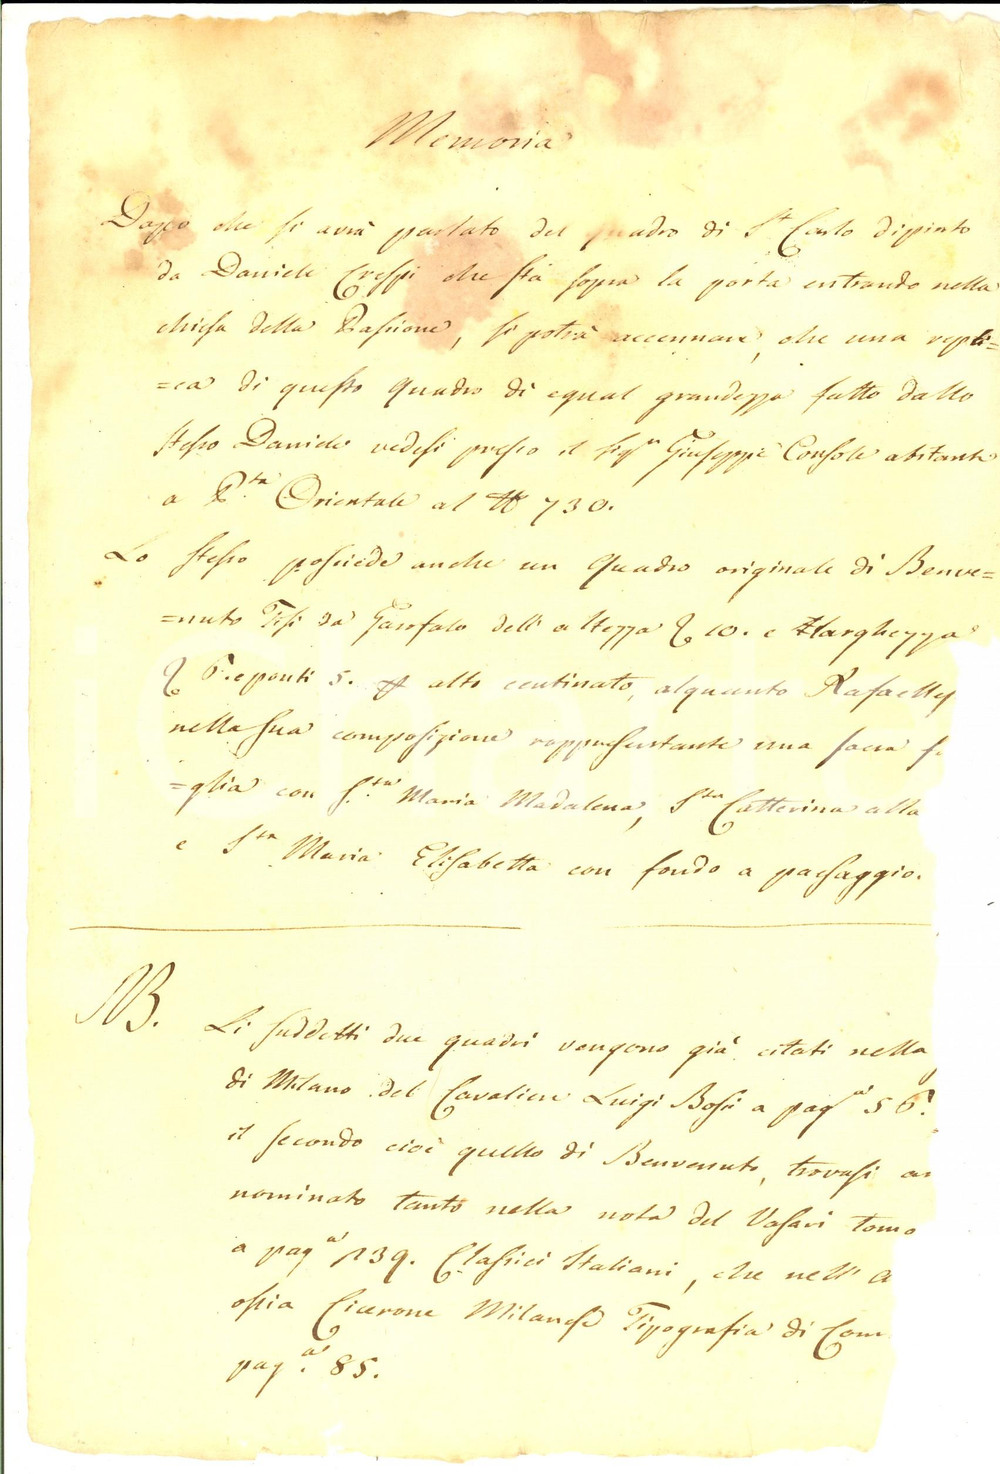 Memoria
Dopo che si avrà parlato del quadro di St Carlo dipinto
da Daniele Crespi che sta sopra la porta entrando nella
chiesa della Passione, si potrà accennare, che una repli=
=ca di questo Quadro di equal grandezza fatto dallo
stesso Daniele vedesi presso il Sigr Giuseppe Console abitante
a P.ta Orientale al N 730.
Lo stesso possiede anche un Quadro originale di Benve=
=nuto Tisi da Garofalo dell' altezza 10. e larghezza
6. e ponti 5. alto centinato, alquanto Rafaelles
nella sua composizione rappresentante una sacra f
=glia con S.ta Maria Madalena, Sta Catterina alla
e Sta Maria Elisabetta con fondo a paesaggio.
NB. Li suddetti due quadri vengono già citati nella
di Milano del Cavaliere Luigi Bossi a paga 56.
il secondo cioè quello di Benvenuto, trovasi
nominato tanto nella nota del Vasari tomo
a paga 139. Classici Italiani, che nell' A
ossia Cicerone Milanese Tipografia di Com
pag.a 85.